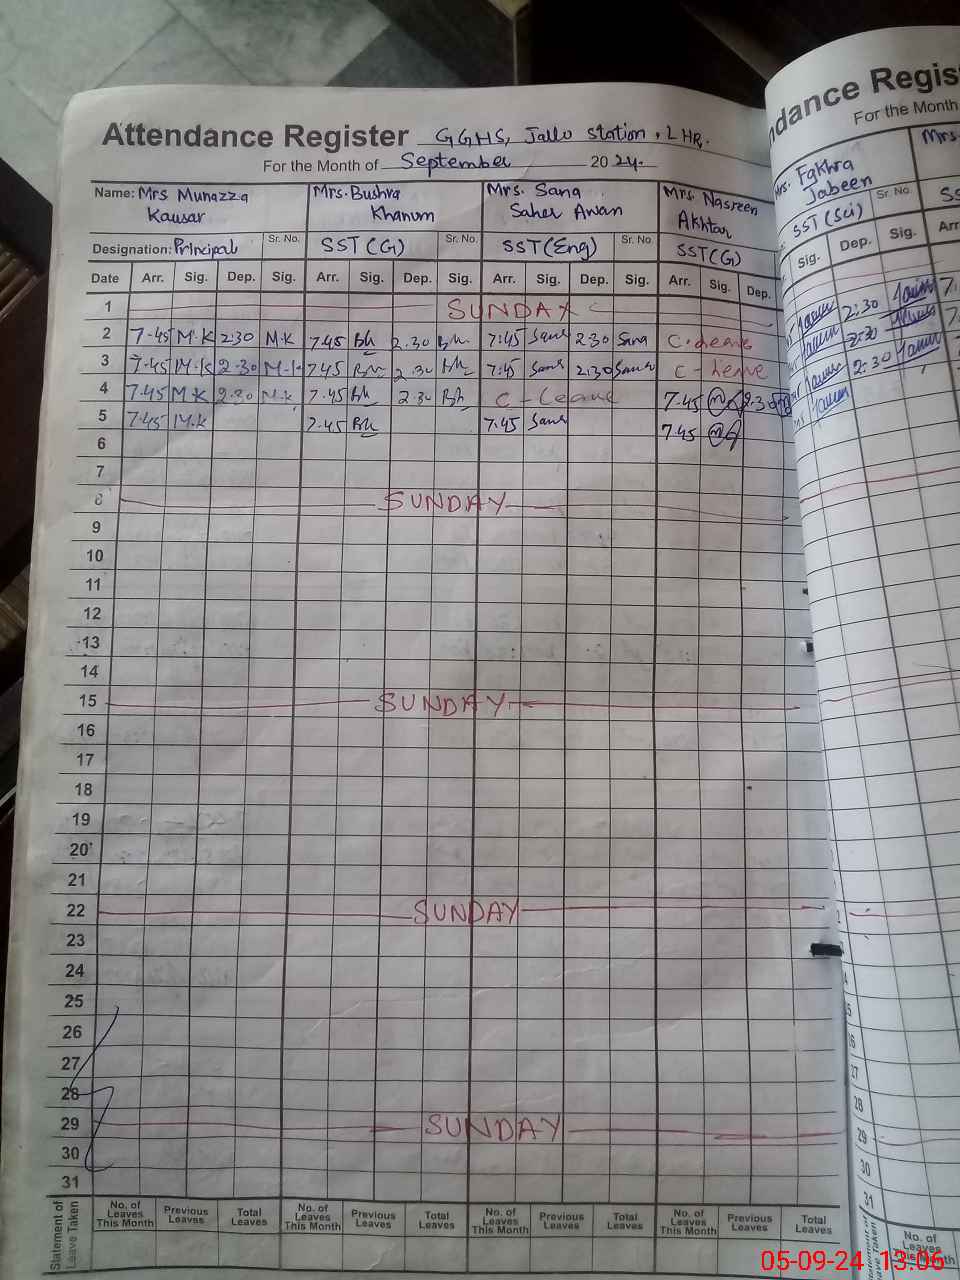 Attendance Register GGHS, Jallo Station, LHR.
For the Month of September 2024.
Name: Mrs Munazza Kausar Mrs. Bushra Khanum Mrs. Sana Saher Awan Mrs. Nasreen Akhtar
Designation: Principal Sr. No. SST(G) Sr. No. SST(Eng) Sr. No. SST(G)
Date Arr. Sig. Dep. Sig. Arr. Sig. Dep. Sig. Arr. Sig. Dep. Sig. Arr. Sig. Dep.
1 SUNDAY
2 7.45 M.K 2:30 M.K 7.45 Bk 2.30 7:45 Sana 2:30 Sana C.Leave
3 7.45 M.K 2.30 7.45 2.30 7:45 Sana 2:30 Sana C-Leave
4 7.45 M.K 2.30 M.K 7.45 Bk 2.30 Bk C-Leave 7.45 2.30
5 7.45 M.K 7.45 Bk 7.45 Sana 7.45
6
7
8 SUNDAY
9
10
11
12
13
14
15 SUNDAY
16
17
18
19
20
21
22 SUNDAY
23
24
25
26
27
28
29 SUNDAY
30
31
Statement of Leave Taken
No. of Leaves This Month Previous Leaves Total Leaves No. of Leaves This Month Previous Leaves Total Leaves No. of Leaves This Month Previous Leaves Total Leaves No. of Leaves This Month Previous Leaves Total Leaves
ndance Regis
For the Month
Mrs. Fakhra Jabeen Mrs.
SST(Sci) Sr. No. SS
Sig. Dep. Sig. Arr
2:30
2:30
2:30
28
29
30
31
No. of Leaves This Month
05-09-24 13:06